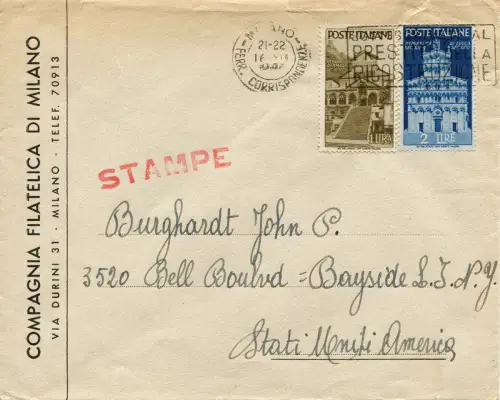 COMPAGNIA FILATELICA DI MILANO
VIA DURINI 31 - MILANO - TELEF. 70913
MILANO
21-22
1947
FERR. CORRISPONDENZE
PRESTITO DELLA
RICOSTRUZIONE
POSTE ITALIANE
POSTE ITALIANE
1 LIRA
2 LIRE
STAMPE
Burghardt John P.
3520 Bell Boulvd = Bayside L.I. N.Y.
Stati Uniti America